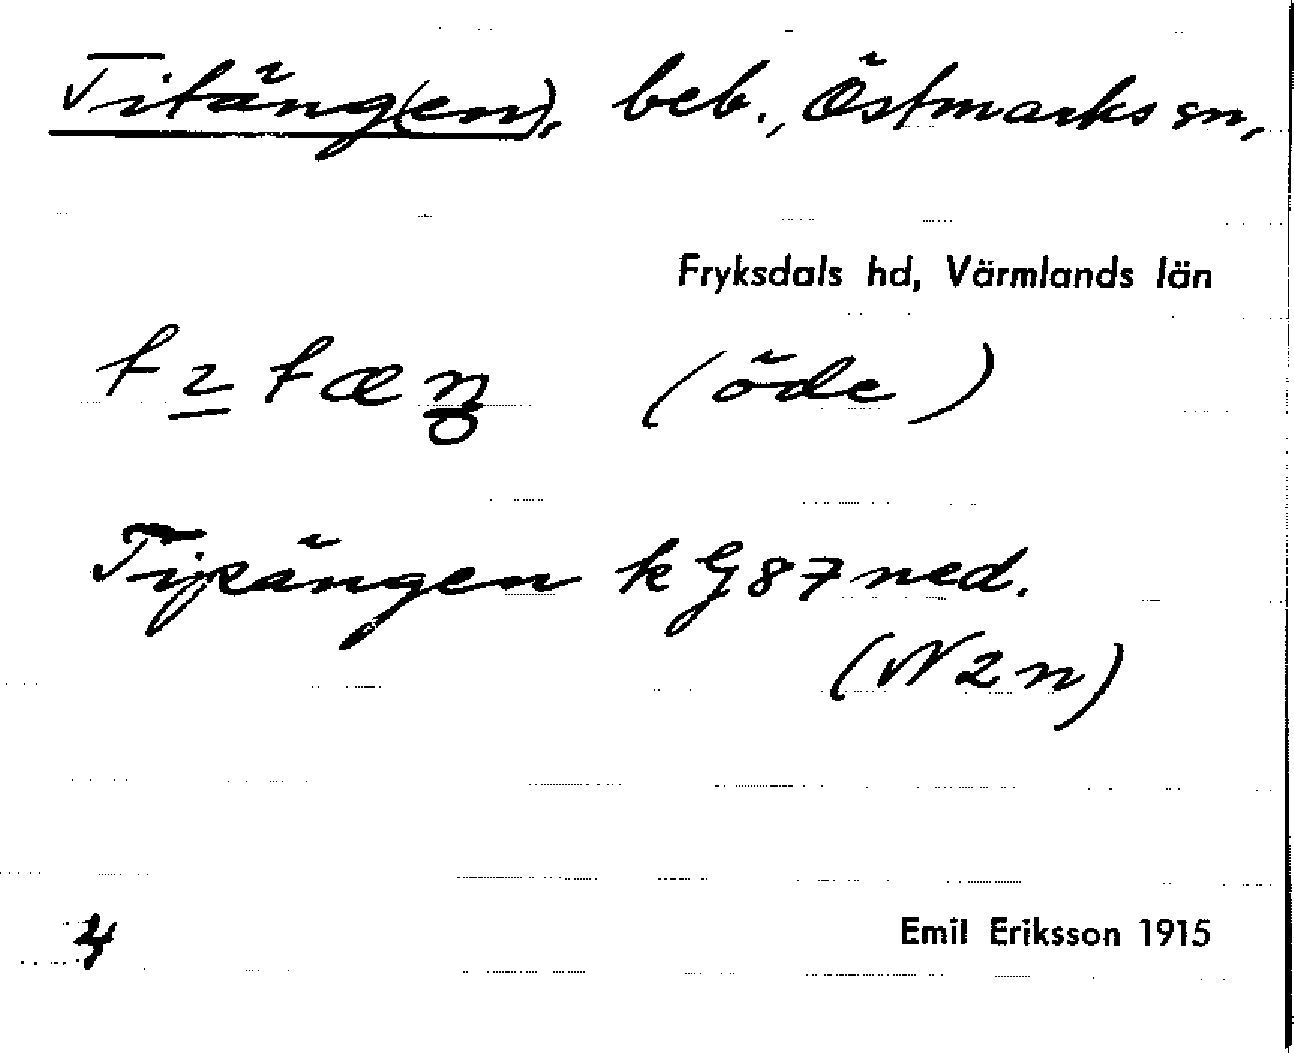 Titäng(en), beb., Östmarks sn,
Fryksdals hd, Värmlands län
(öde)
Tipängen k G 87 ned.
(N 2 n)
4
Emil Eriksson 1915